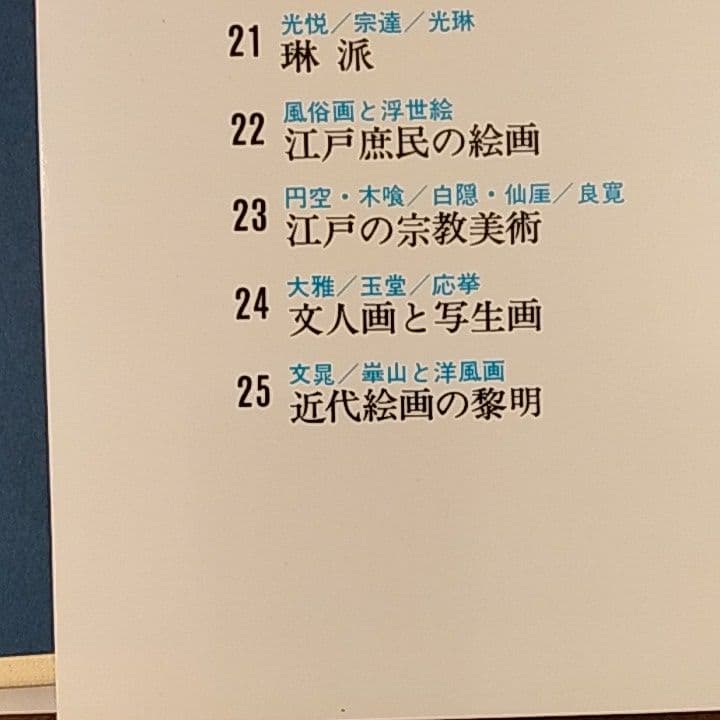 光悦／宗達／光琳
21 琳派
風俗画と浮世絵
22 江戸庶民の絵画
円空・木喰／白隠・仙厓／良寛
23 江戸の宗教美術
大雅／玉堂／応挙
24 文人画と写生画
文晁／崋山と洋風画
25 近代絵画の黎明